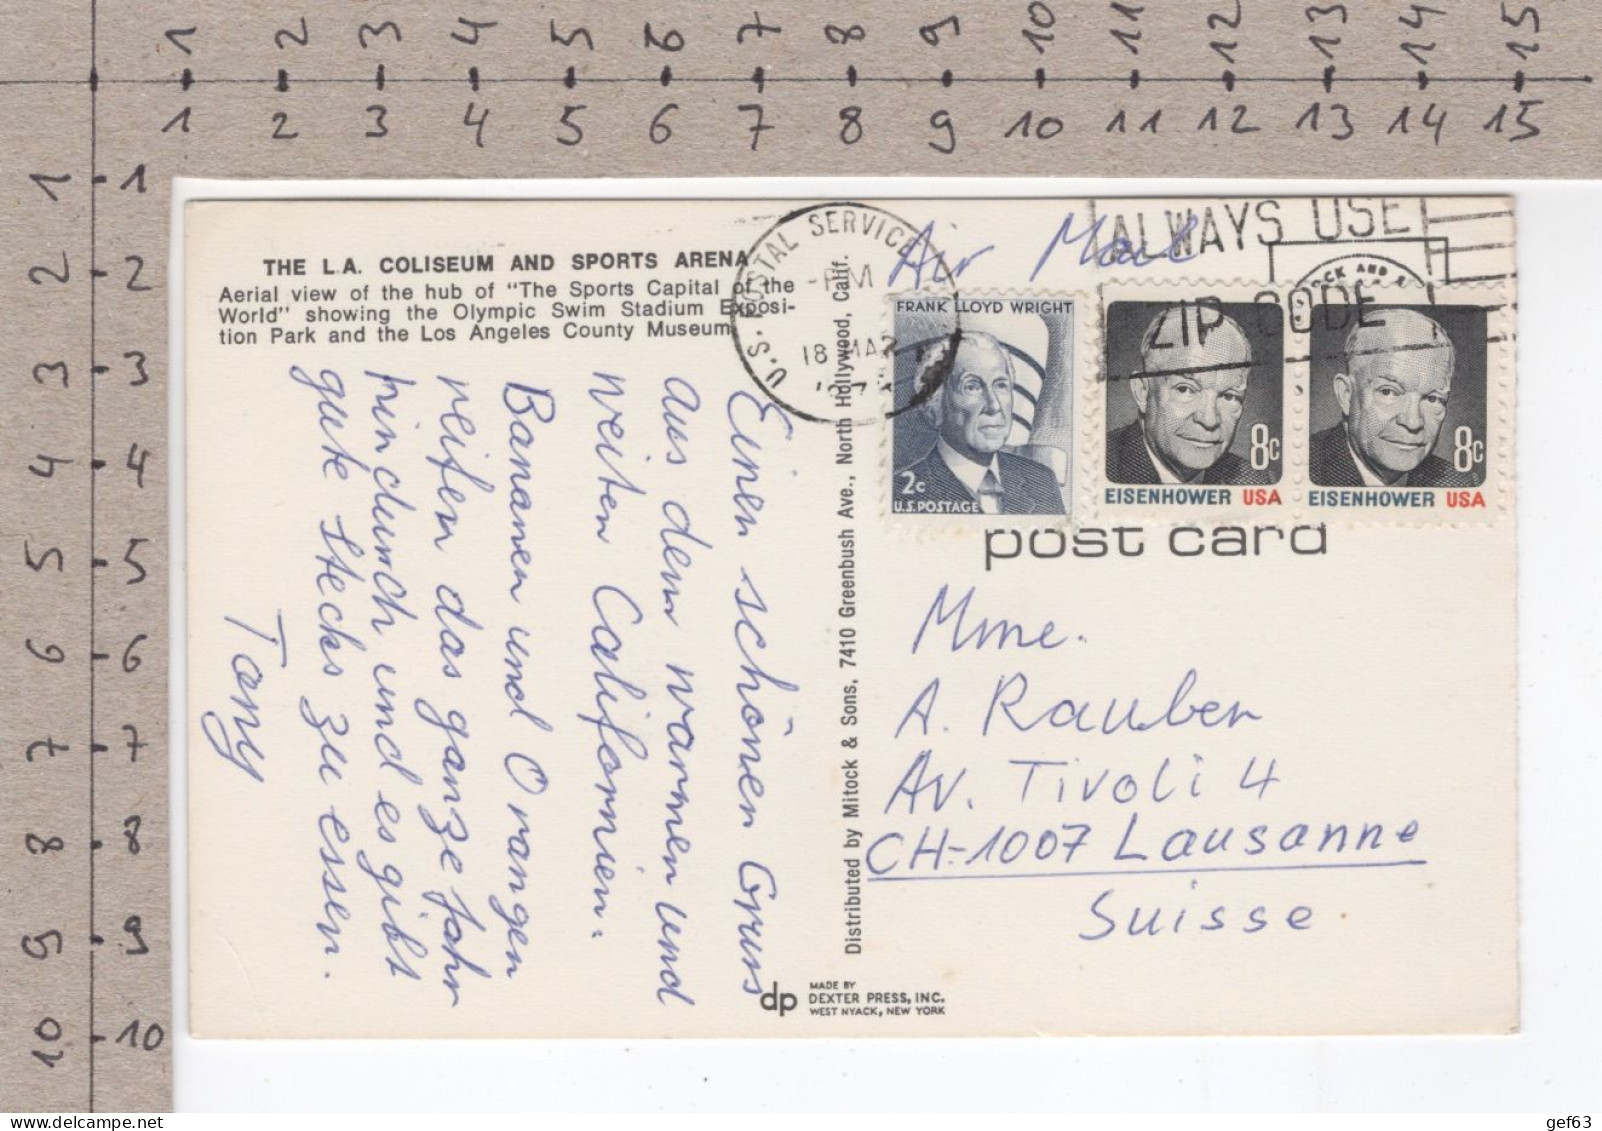 1 2 3 4 5 6 7 8 9 10 11 12 13 14 15
1 2 3 4 5 6 7 8 9 10 11 12 13 14 15
1 1
2 2
3 3
4 4
5 5
6 6
7 7
8 8
9 9
10 10
THE L.A. COLISEUM AND SPORTS ARENA
Aerial view of the hub of "The Sports Capital of the
World" showing the Olympic Swim Stadium Exposi-
tion Park and the Los Angeles County Museum.
Einen schönen Gruss
aus dem warmen und
weiten Californien.
Bananen und Orangen
reifen das ganze Jahr
hindurch und es gibt
gute Stecks zu essen.
Tony
Distributed by Mitock & Sons, 7410 Greenbush Ave., North Hollywood, Calif.
dp
MADE BY
DEXTER PRESS, INC.
WEST NYACK, NEW YORK
U.S. POSTAL SERVICE
PM
18 MAR
Air Mail
ALWAYS USE
ZIP CODE
FRANK LLOYD WRIGHT
2c
U.S. POSTAGE
8c
EISENHOWER USA
8c
EISENHOWER USA
post card
Mme.
A. Rauber
Av. Tivoli 4
CH-1007 Lausanne
Suisse.
gef63